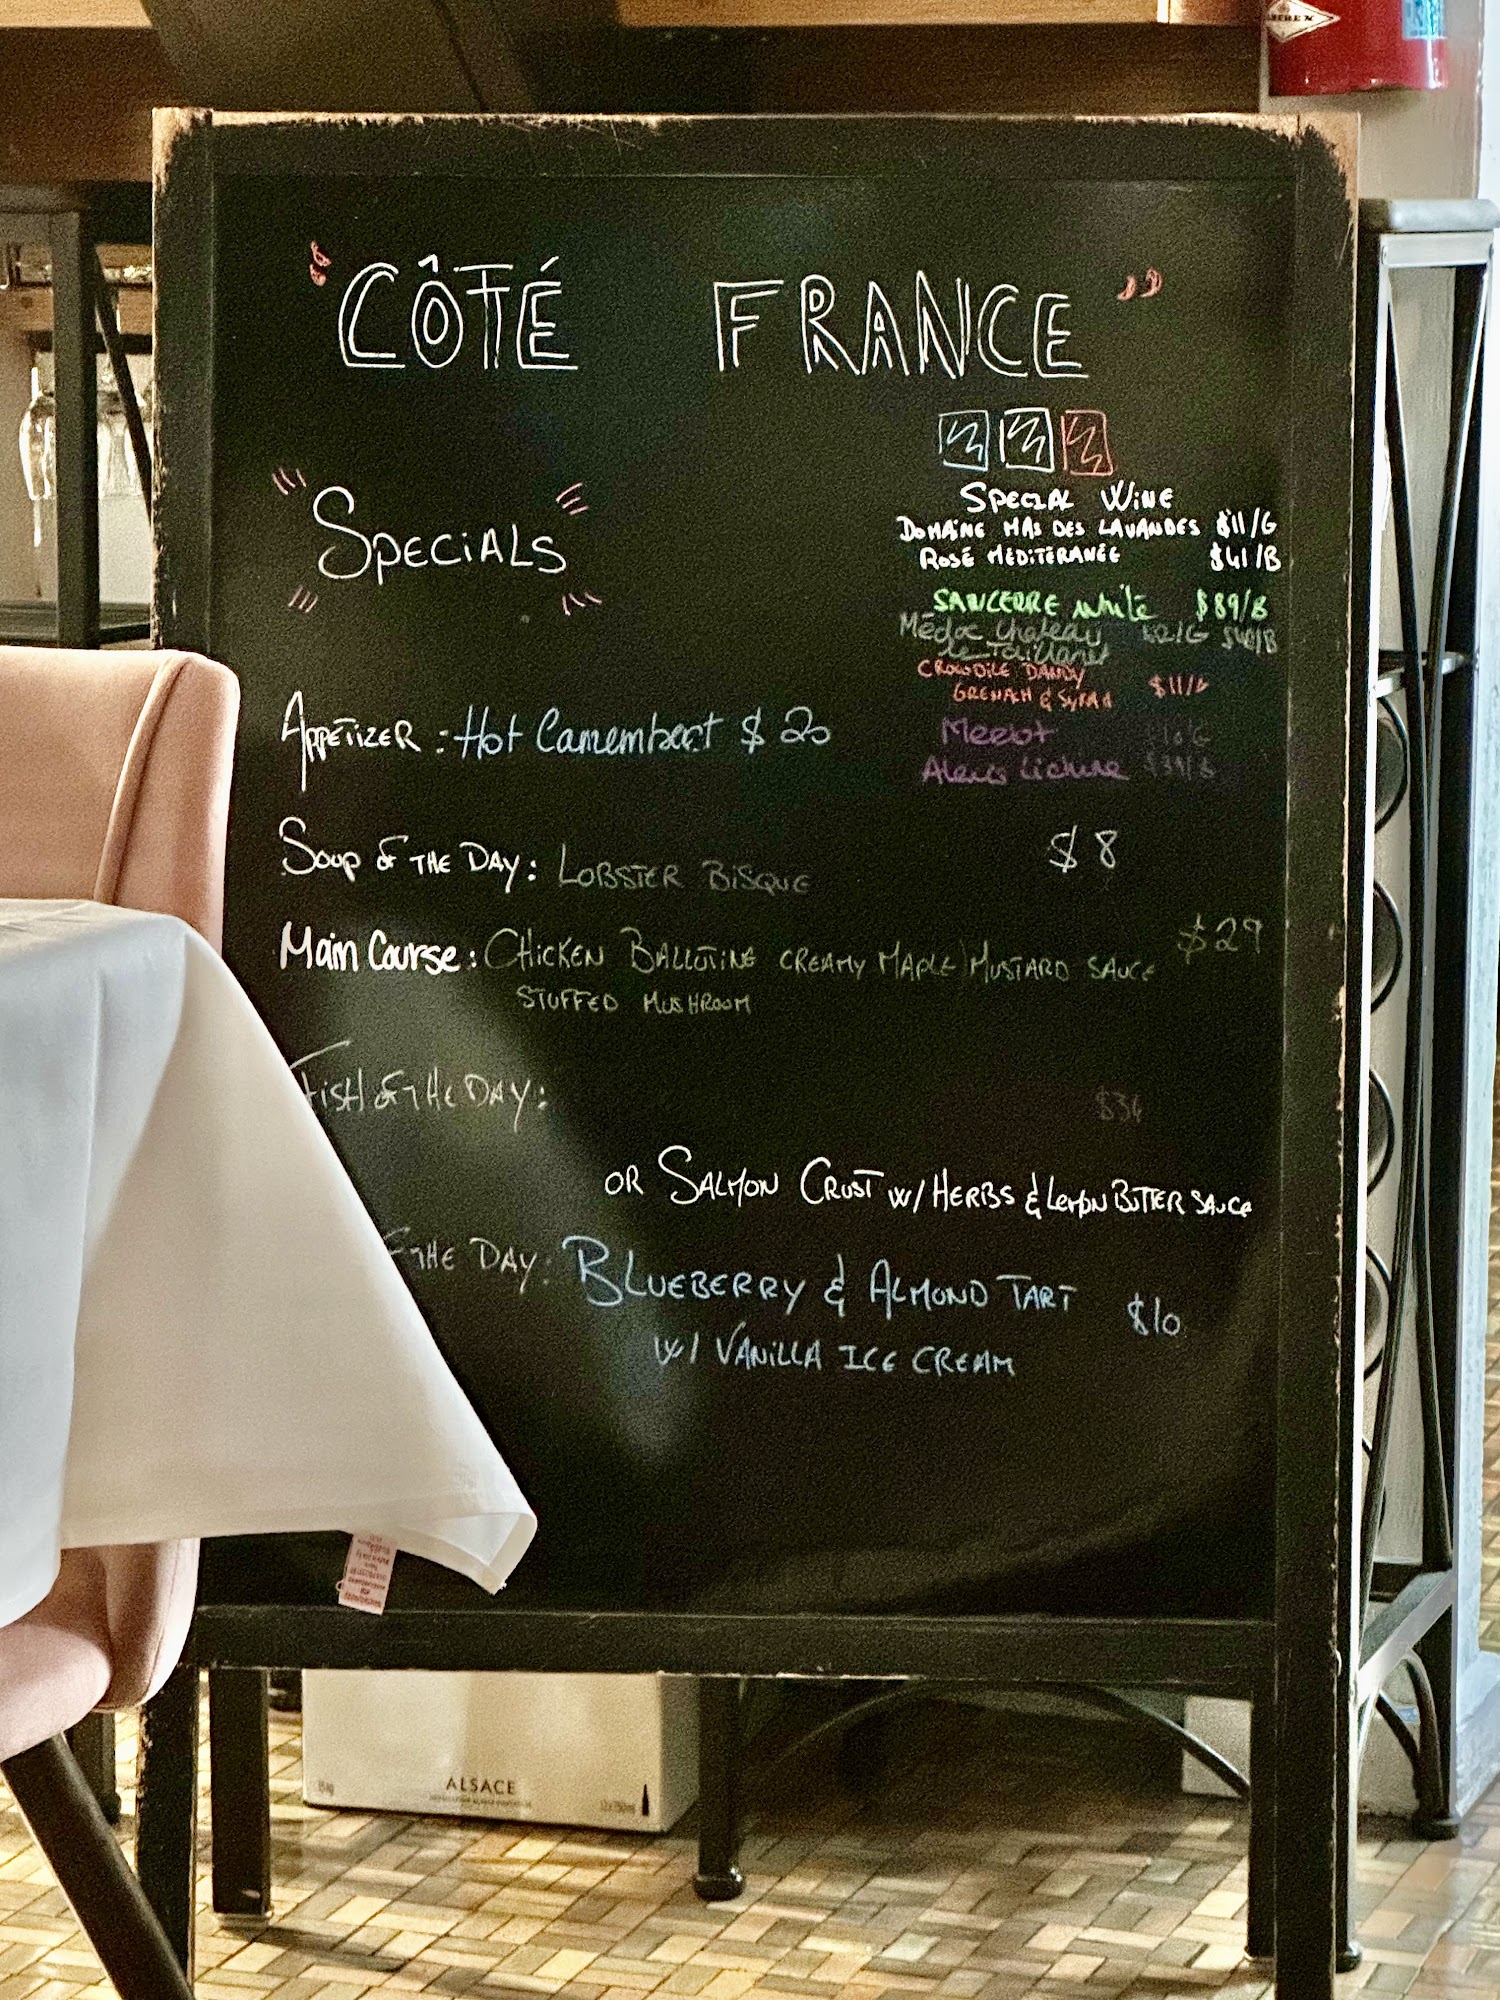 "CÔTÉ FRANCE"
SPECIAL WINE
DOMAINE MAS DES LAVANDES $11/G
ROSÉ MÉDITERANÉE $41/B
SANCERRE white $89/B
Médoc Chateau
CROCODILE DANDY
GRENACH & SYRAH $11/G
Merlot
Alexis Lichine $39/B
SPECIALS
APPETIZER: Hot Camembert $20
SOUP OF THE DAY: LOBSTER BISQUE $8
Main Course: CHICKEN BALLOTINE CREAMY MAPLE/MUSTARD SAUCE $29
STUFFED MUSHROOM
FISH OF THE DAY: $34
OR SALMON CRUST W/ HERBS & LEMON BUTTER SAUCE
OF THE DAY: BLUEBERRY & ALMOND TART $10
W/ VANILLA ICE CREAM
ALSACE